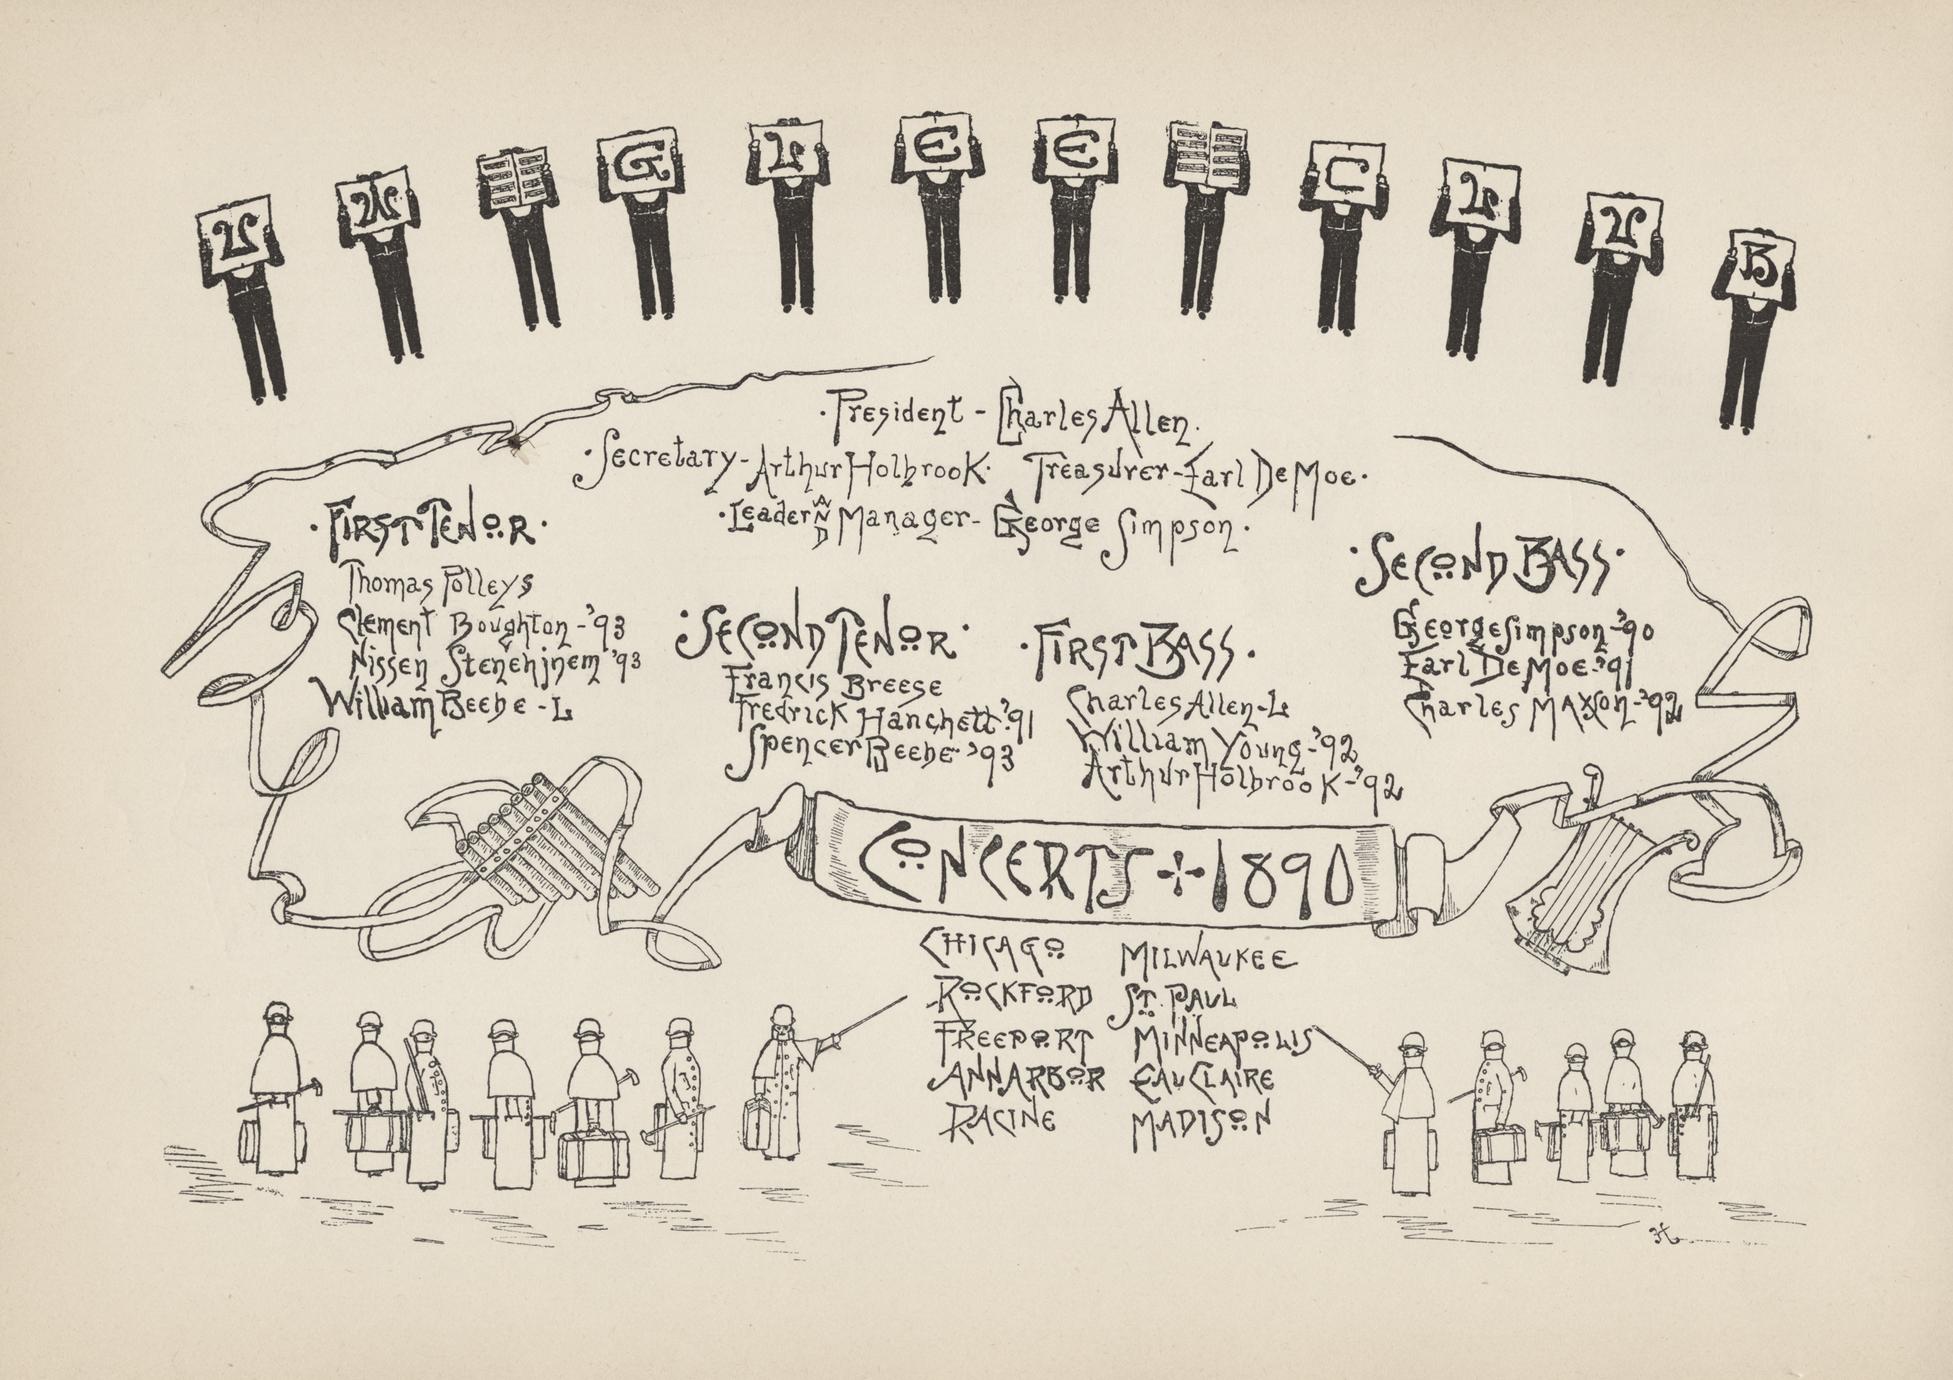 U W GLEE CLUB
·President - Charles Allen.
·Secretary - Arthur Holbrook· Treasurer - Earl DeMoe·
·Leader AND Manager - George Simpson·
·FIRST TENOR·
Thomas Polleys
Clement Boughton - '93
Nissen Stenehjnem '93
William Beebe - L
·SECOND TENOR·
Francis Breese
Fredrick Hanchett '91
Spencer Beebe - '93
·FIRST BASS·
Charles Allen - L
William Young - '92
Arthur Holbrook - '92
·SECOND BASS·
George Simpson - '90
Earl DeMoe - '91
Charles Maxson - '92
CONCERTS + 1890
CHICAGO
ROCKFORD
FREEPORT
ANN ARBOR
RACINE
MILWAUKEE
ST. PAUL
MINNEAPOLIS
EAU CLAIRE
MADISON